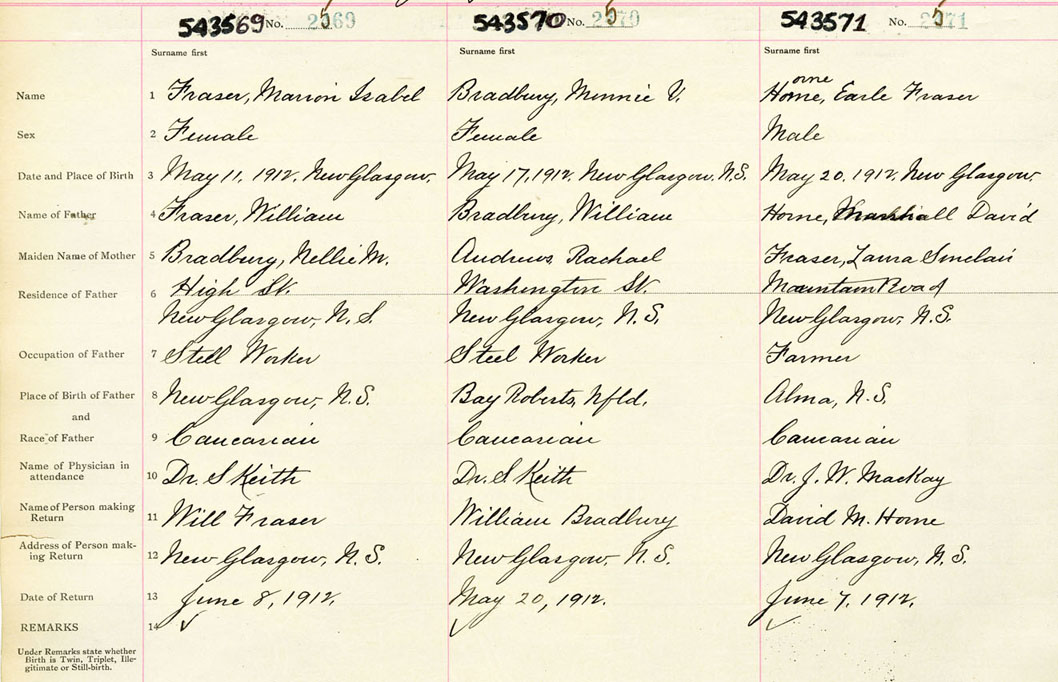 543569 No. 2569 543570 No. 2570 543571 No. 2571
Surname first Surname first Surname first
orne
Name 1 Fraser, Marion Isabel Bradbury, Minnie V. Horne, Earle Fraser
Sex 2 Female Female Male
Date and Place of Birth 3 May 11, 1912, New Glasgow. May 17, 1912. New Glasgow. N.S. May 20, 1912, New Glasgow
Name of Father 4 Fraser, William Bradbury, William Horne, Marshall David
Maiden Name of Mother 5 Bradbury, Nellie M. Andrews, Rachael Fraser, Laura Sinclair
Residence of Father 6 High St. Washington St. Mountain Road
New Glasgow, N.S. New Glasgow, N.S. New Glasgow, N.S.
Occupation of Father 7 Stell Worker Steel Worker Farmer
Place of Birth of Father 8 New Glasgow, N.S. Bay Roberts, Nfld. Alma, N.S.
and
Race of Father 9 Caucasian Caucasian Caucasian
Name of Physician in
attendance 10 Dr. S Keith Dr. S Keith Dr. J. W. MacKay
Name of Person making
Return 11 Will Fraser William Bradbury David M. Horne
Address of Person mak-
ing Return 12 New Glasgow, N.S. New Glasgow, N.S. New Glasgow, N.S.
Date of Return 13 June 8, 1912. May 20, 1912. June 7, 1912.
REMARKS 14
Under Remarks state whether
Birth is Twin, Triplet, Ille-
gitimate or Still-birth.